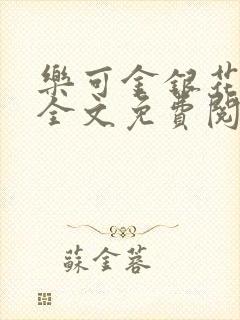 樂可金銀花
全文免費閱
蘇金蓉